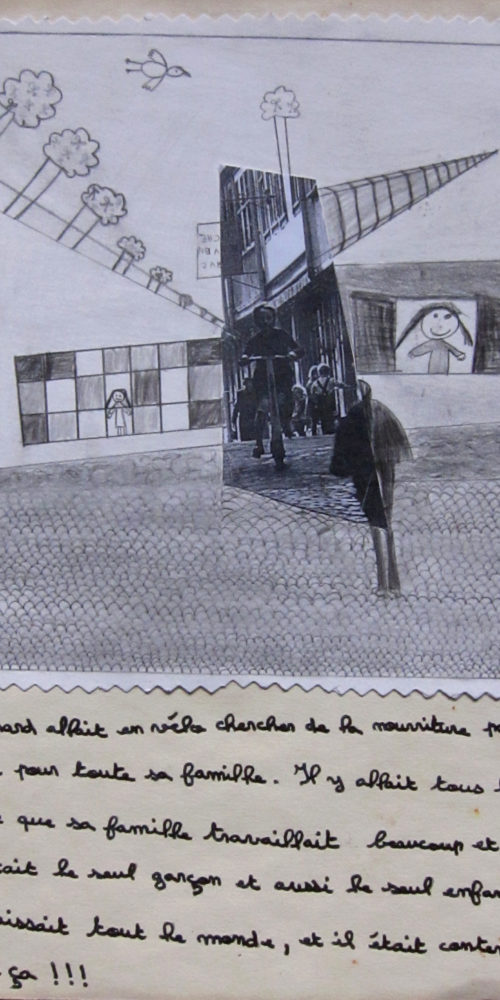 nard allait en vélo chercher de la nourriture po
pour toute sa famille. Il y allait tous
que sa famille travaillait beaucoup et
tait le seul garçon et aussi le seul enfan
aissait tout le monde, et il était conten
ça !!!